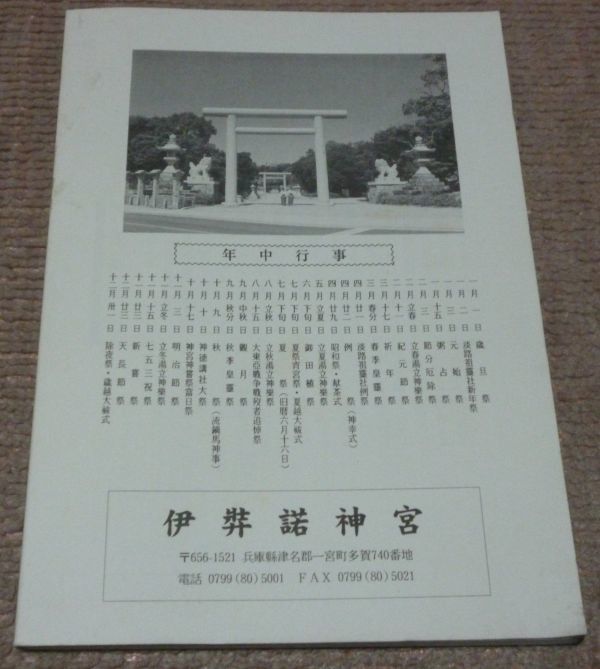 年中行事
一月一日 歳旦祭
一月二日 淡路祖霊社新年祭
一月三日 元始祭
一月十五日 粥占祭
二月三日 節分厄除祭
二月立春 立春湯立神樂祭
二月十一日 紀元節祭
二月十七日 祈年祭
三月春分 春季皇霊祭
四月廿一日 淡路祖霊社例祭
四月廿二日 例祭(神幸式)
四月廿九日 昭和祭・献茶式
五月立夏 立夏湯立神樂祭
六月下旬 御田植祭
七月下旬 夏祭宵宮祭・夏越大祓式
七月下旬 夏祭(旧暦六月十六日)
八月立秋 立秋湯立神樂祭
八月十五日 大東亞戦争戦歿者追悼祭
九月中秋 觀月祭
九月秋分 秋季皇霊祭
十月九日 秋祭(流鏑馬神事)
十月十日 神徳講社大祭
十月十七日 神宮神嘗祭當日祭
十一月三日 明治節祭
十一月立冬 立冬湯立神樂祭
十一月十五日 七五三祝祭
十一月廿三日 新嘗祭
十二月廿三日 天長節祭
十二月卅一日 除夜祭・歳越大祓式
伊弉諾神宮
〒656-1521 兵庫縣津名郡一宮町多賀740番地
電話 0799(80)5001 FAX 0799(80)5021